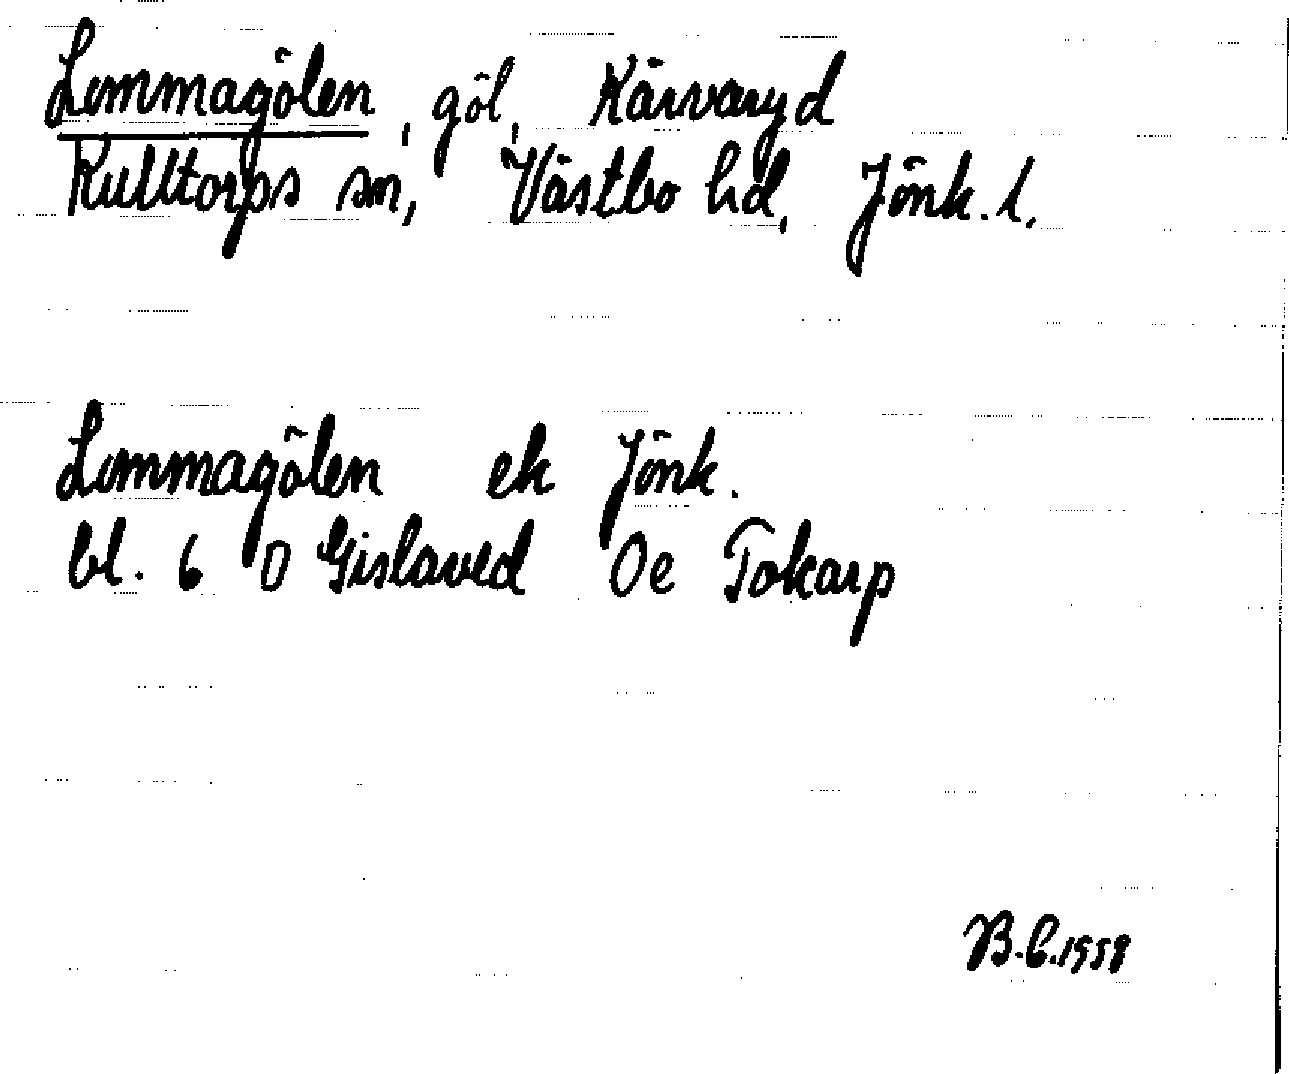 Lommagölen, göl, Kärvaryd
Kulltorps sn, Västbo hd, Jönk. l.
Lommagölen ek Jönk.
bl. 6 D Gislaved Oe Tokarp
B.C. 1959